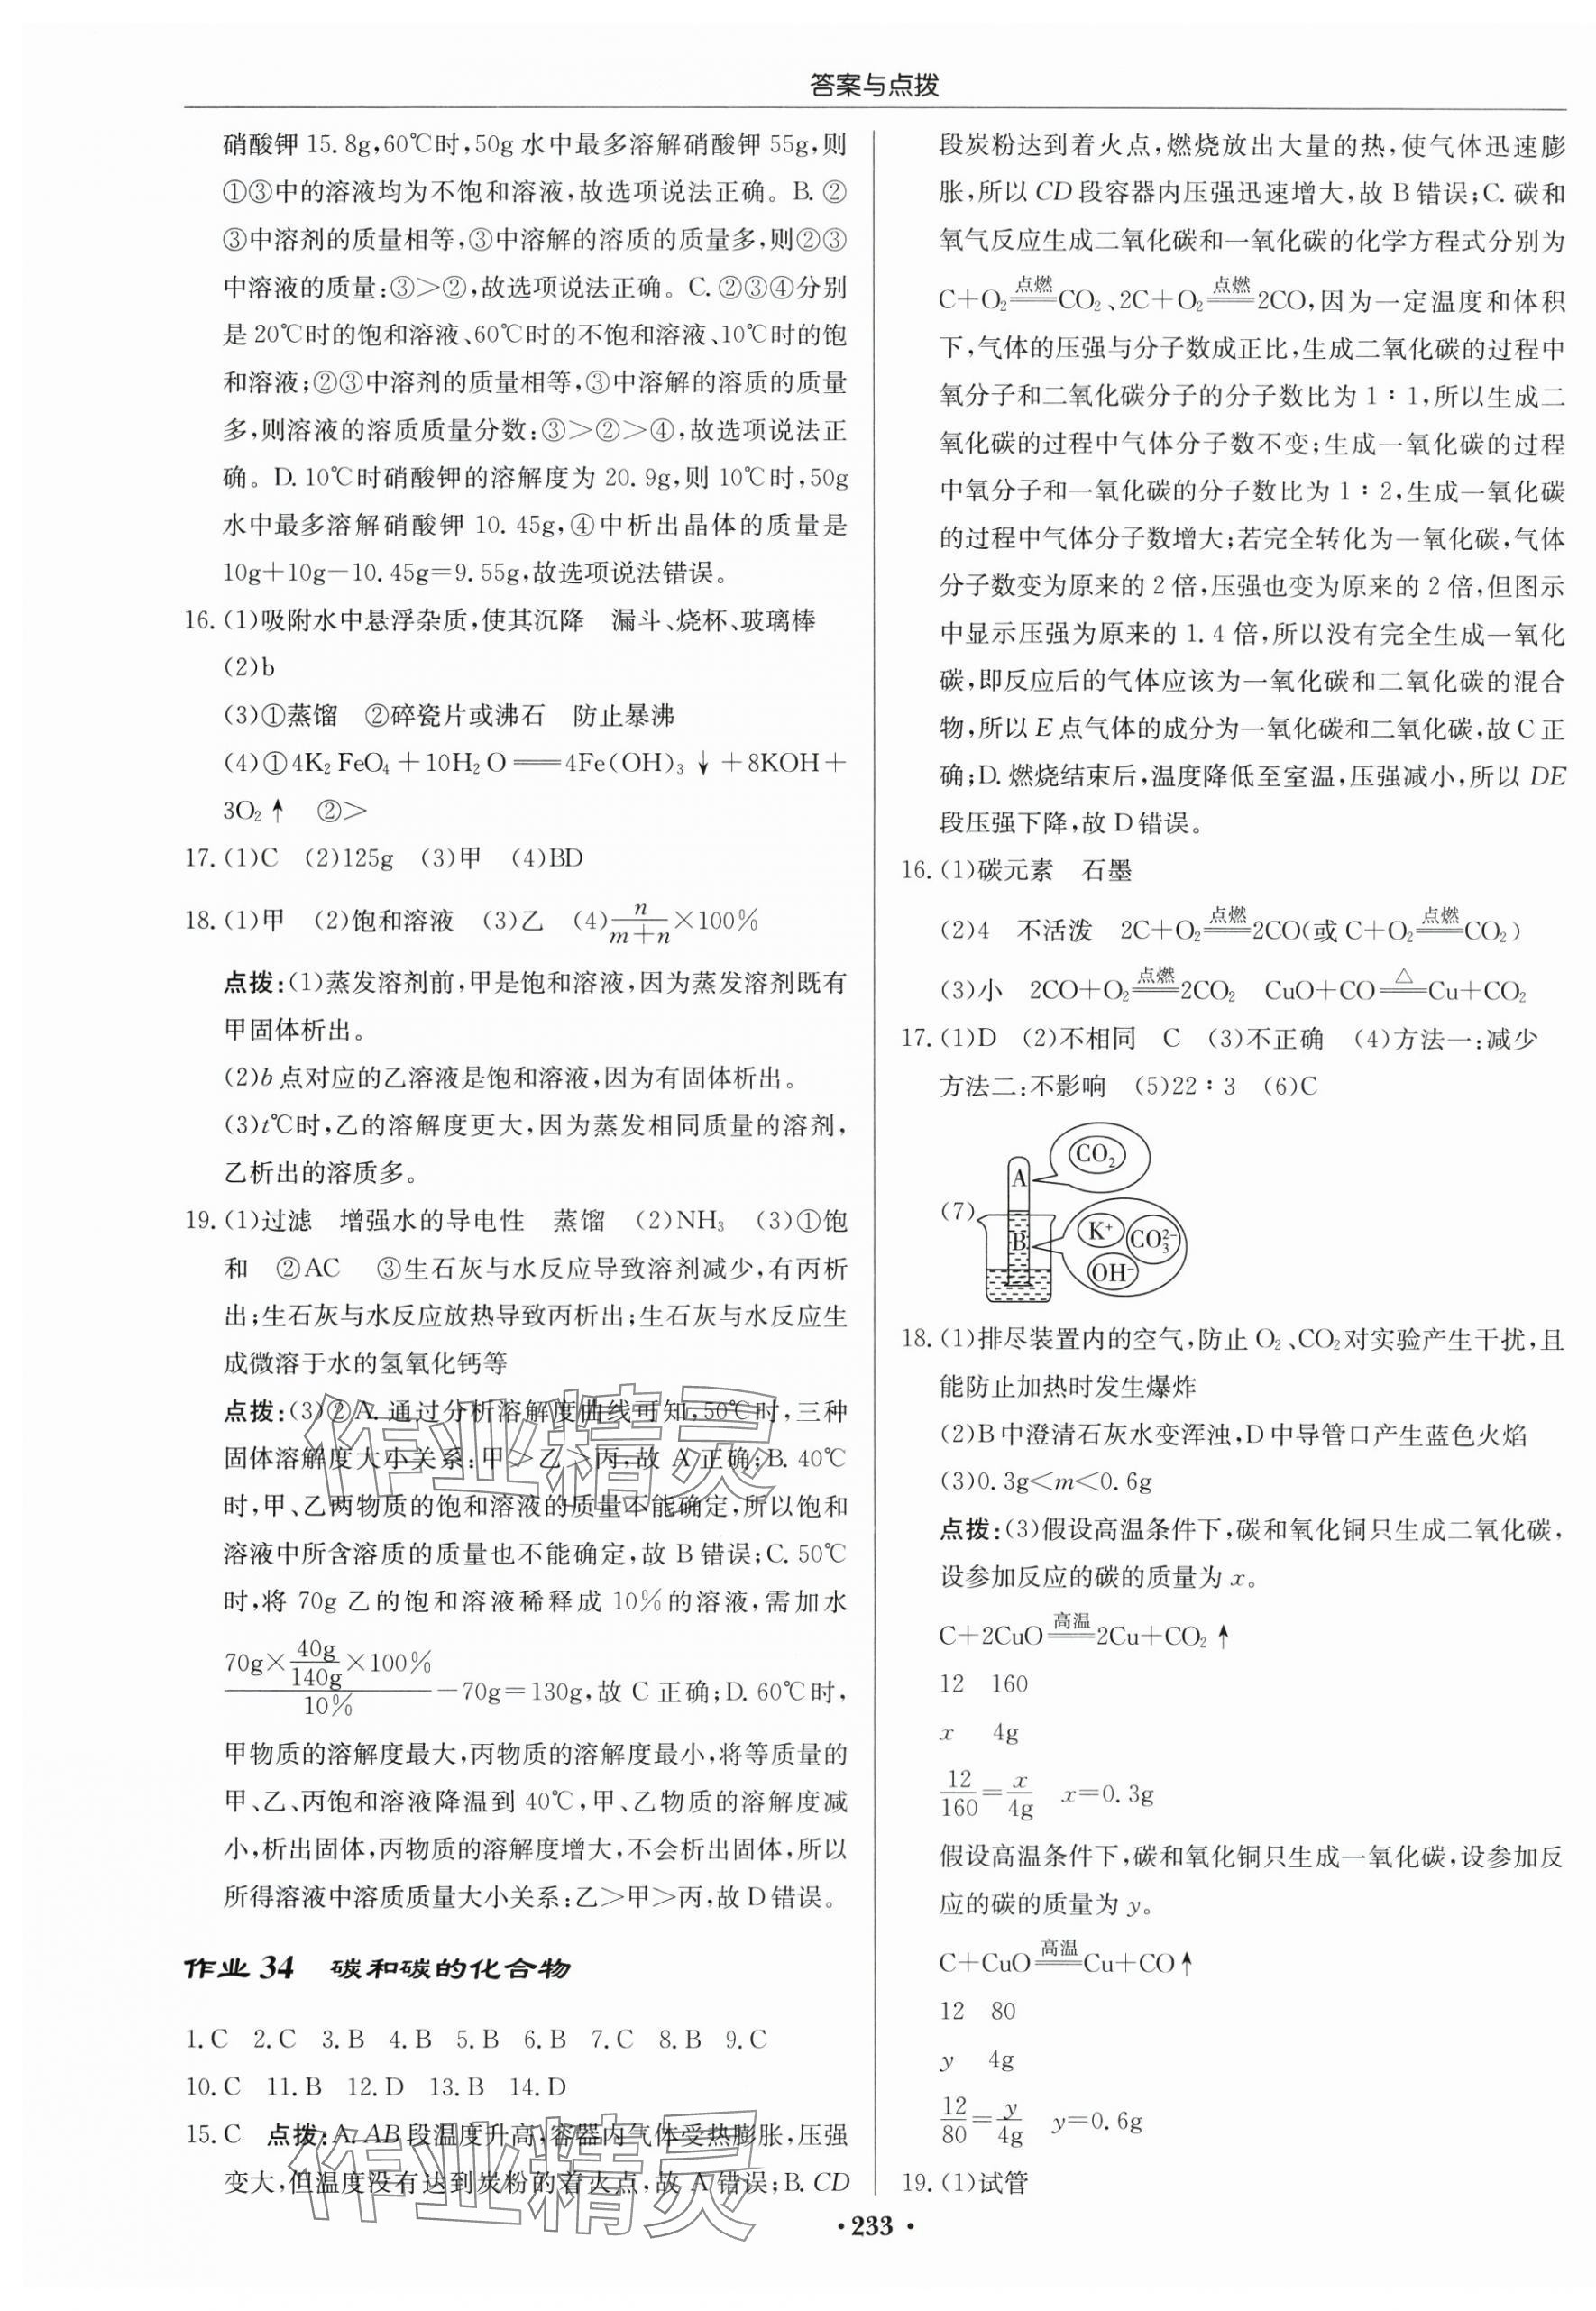 答案与点拨
硝酸钾 15.8g,60℃时,50g 水中最多溶解硝酸钾 55g,则
①③中的溶液均为不饱和溶液,故选项说法正确。B.②
③中溶剂的质量相等,③中溶解的溶质的质量多,则②③
中溶液的质量:③>②,故选项说法正确。C.②③④分别
是 20℃时的饱和溶液、60℃时的不饱和溶液、10℃时的饱
和溶液;②③中溶剂的质量相等,③中溶解的溶质的质量
多,则溶液的溶质质量分数:③>②>④,故选项说法正
确。D.10℃时硝酸钾的溶解度为 20.9g,则 10℃时,50g
水中最多溶解硝酸钾 10.45g,④中析出晶体的质量是
10g+10g-10.45g=9.55g,故选项说法错误。
16.(1)吸附水中悬浮杂质,使其沉降 漏斗、烧杯、玻璃棒
(2)b
(3)①蒸馏 ②碎瓷片或沸石 防止暴沸
(4)①4K₂FeO₄+10H₂O══4Fe(OH)₃↓+8KOH+
3O₂↑ ②>
17.(1)C (2)125g (3)甲 (4)BD
18.(1)甲 (2)饱和溶液 (3)乙 (4)n/(m+n)×100%
点拨:(1)蒸发溶剂前,甲是饱和溶液,因为蒸发溶剂既有
甲固体析出。
(2)b 点对应的乙溶液是饱和溶液,因为有固体析出。
(3)t℃时,乙的溶解度更大,因为蒸发相同质量的溶剂,
乙析出的溶质多。
19.(1)过滤 增强水的导电性 蒸馏 (2)NH₃ (3)①饱
和 ②AC ③生石灰与水反应导致溶剂减少,有丙析
出;生石灰与水反应放热导致丙析出;生石灰与水反应生
成微溶于水的氢氧化钙等
点拨:(3)②A.通过分析溶解度曲线可知,50℃时,三种
固体溶解度大小关系:甲>乙>丙,故 A 正确;B.40℃
时,甲、乙两物质的饱和溶液的质量不能确定,所以饱和
溶液中所含溶质的质量也不能确定,故 B 错误;C.50℃
时,将 70g 乙的饱和溶液稀释成 10%的溶液,需加水
(70g×40g/140g×100%)/10%-70g=130g,故 C 正确;D.60℃时,
甲物质的溶解度最大,丙物质的溶解度最小,将等质量的
甲、乙、丙饱和溶液降温到 40℃,甲、乙物质的溶解度减
小,析出固体,丙物质的溶解度增大,不会析出固体,所以
所得溶液中溶质质量大小关系:乙>甲>丙,故 D 错误。
作业 34 碳和碳的化合物
1.C 2.C 3.B 4.B 5.B 6.B 7.C 8.B 9.C
10.C 11.B 12.D 13.B 14.D
15.C 点拨:A.AB 段温度升高,容器内气体受热膨胀,压强
变大,但温度没有达到炭粉的着火点,故 A 错误;B.CD
段炭粉达到着火点,燃烧放出大量的热,使气体迅速膨
胀,所以 CD 段容器内压强迅速增大,故 B 错误;C.碳和
氧气反应生成二氧化碳和一氧化碳的化学方程式分别为
C+O₂═点燃═CO₂、2C+O₂═点燃═2CO,因为一定温度和体积
下,气体的压强与分子数成正比,生成二氧化碳的过程中
氧分子和二氧化碳分子的分子数比为 1∶1,所以生成二
氧化碳的过程中气体分子数不变;生成一氧化碳的过程
中氧分子和一氧化碳的分子数比为 1∶2,生成一氧化碳
的过程中气体分子数增大;若完全转化为一氧化碳,气体
分子数变为原来的 2 倍,压强也变为原来的 2 倍,但图示
中显示压强为原来的 1.4 倍,所以没有完全生成一氧化
碳,即反应后的气体应该为一氧化碳和二氧化碳的混合
物,所以 E 点气体的成分为一氧化碳和二氧化碳,故 C 正
确;D.燃烧结束后,温度降低至室温,压强减小,所以 DE
段压强下降,故 D 错误。
16.(1)碳元素 石墨
(2)4 不活泼 2C+O₂═点燃═2CO(或 C+O₂═点燃═CO₂)
(3)小 2CO+O₂═点燃═2CO₂ CuO+CO═△═Cu+CO₂
17.(1)D (2)不相同 C (3)不正确 (4)方法一:减少
方法二:不影响 (5)22∶3 (6)C
(7)
A
CO₂
B
K⁺
CO₃²⁻
OH⁻
18.(1)排尽装置内的空气,防止 O₂、CO₂对实验产生干扰,且
能防止加热时发生爆炸
(2)B 中澄清石灰水变浑浊,D 中导管口产生蓝色火焰
(3)0.3g<m<0.6g
点拨:(3)假设高温条件下,碳和氧化铜只生成二氧化碳,
设参加反应的碳的质量为 x。
C+2CuO═高温═2Cu+CO₂↑
12 160
x 4g
12/160=x/4g x=0.3g
假设高温条件下,碳和氧化铜只生成一氧化碳,设参加反
应的碳的质量为 y。
C+CuO═高温═Cu+CO↑
12 80
y 4g
12/80=y/4g y=0.6g
19.(1)试管
作业精灵
作业精灵
• 233 •